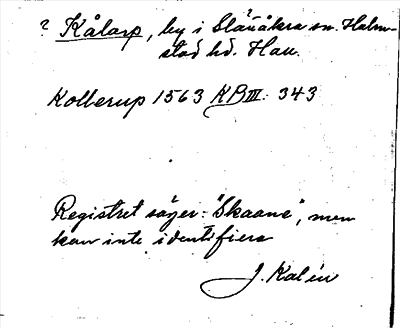 ? Kålarp, by i Slättåkra sn. Halm-
stad hd. Hall.
Kollerup 1563 KB III: 343
Registret säger: "Skaane", men
kan inte identifiera
J. Kalén